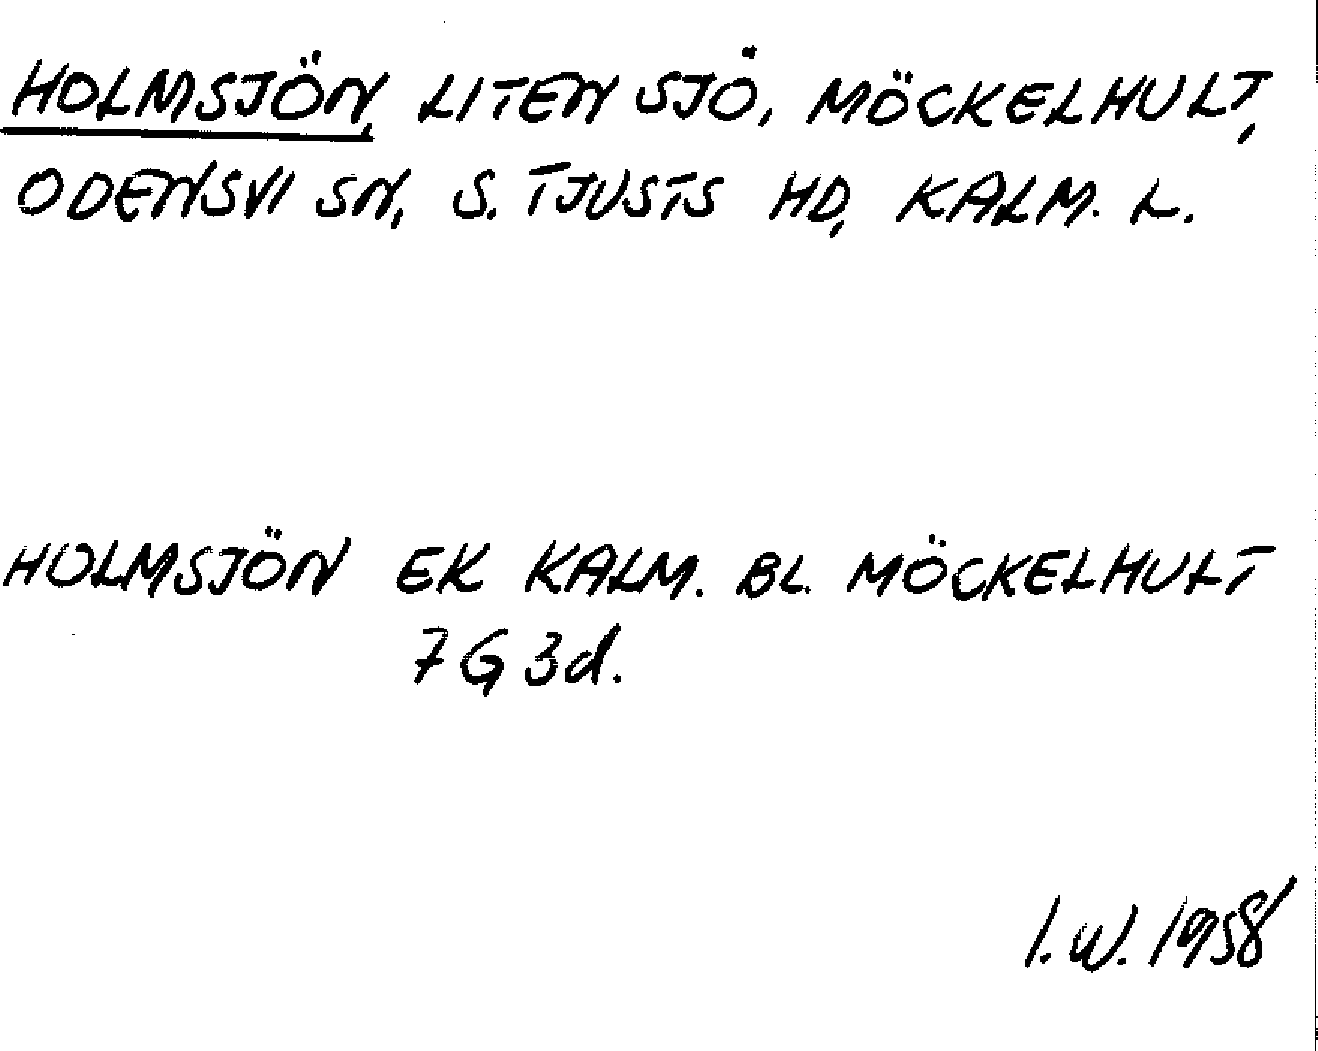 HOLMSJÖN, LITEN SJÖ, MÖCKELHULT,
ODENSVI SN, S. TJUSTS HD, KALM. L.
HOLMSJÖN EK KALM. BL. MÖCKELHULT
7 G 3d.
I.W. 1958